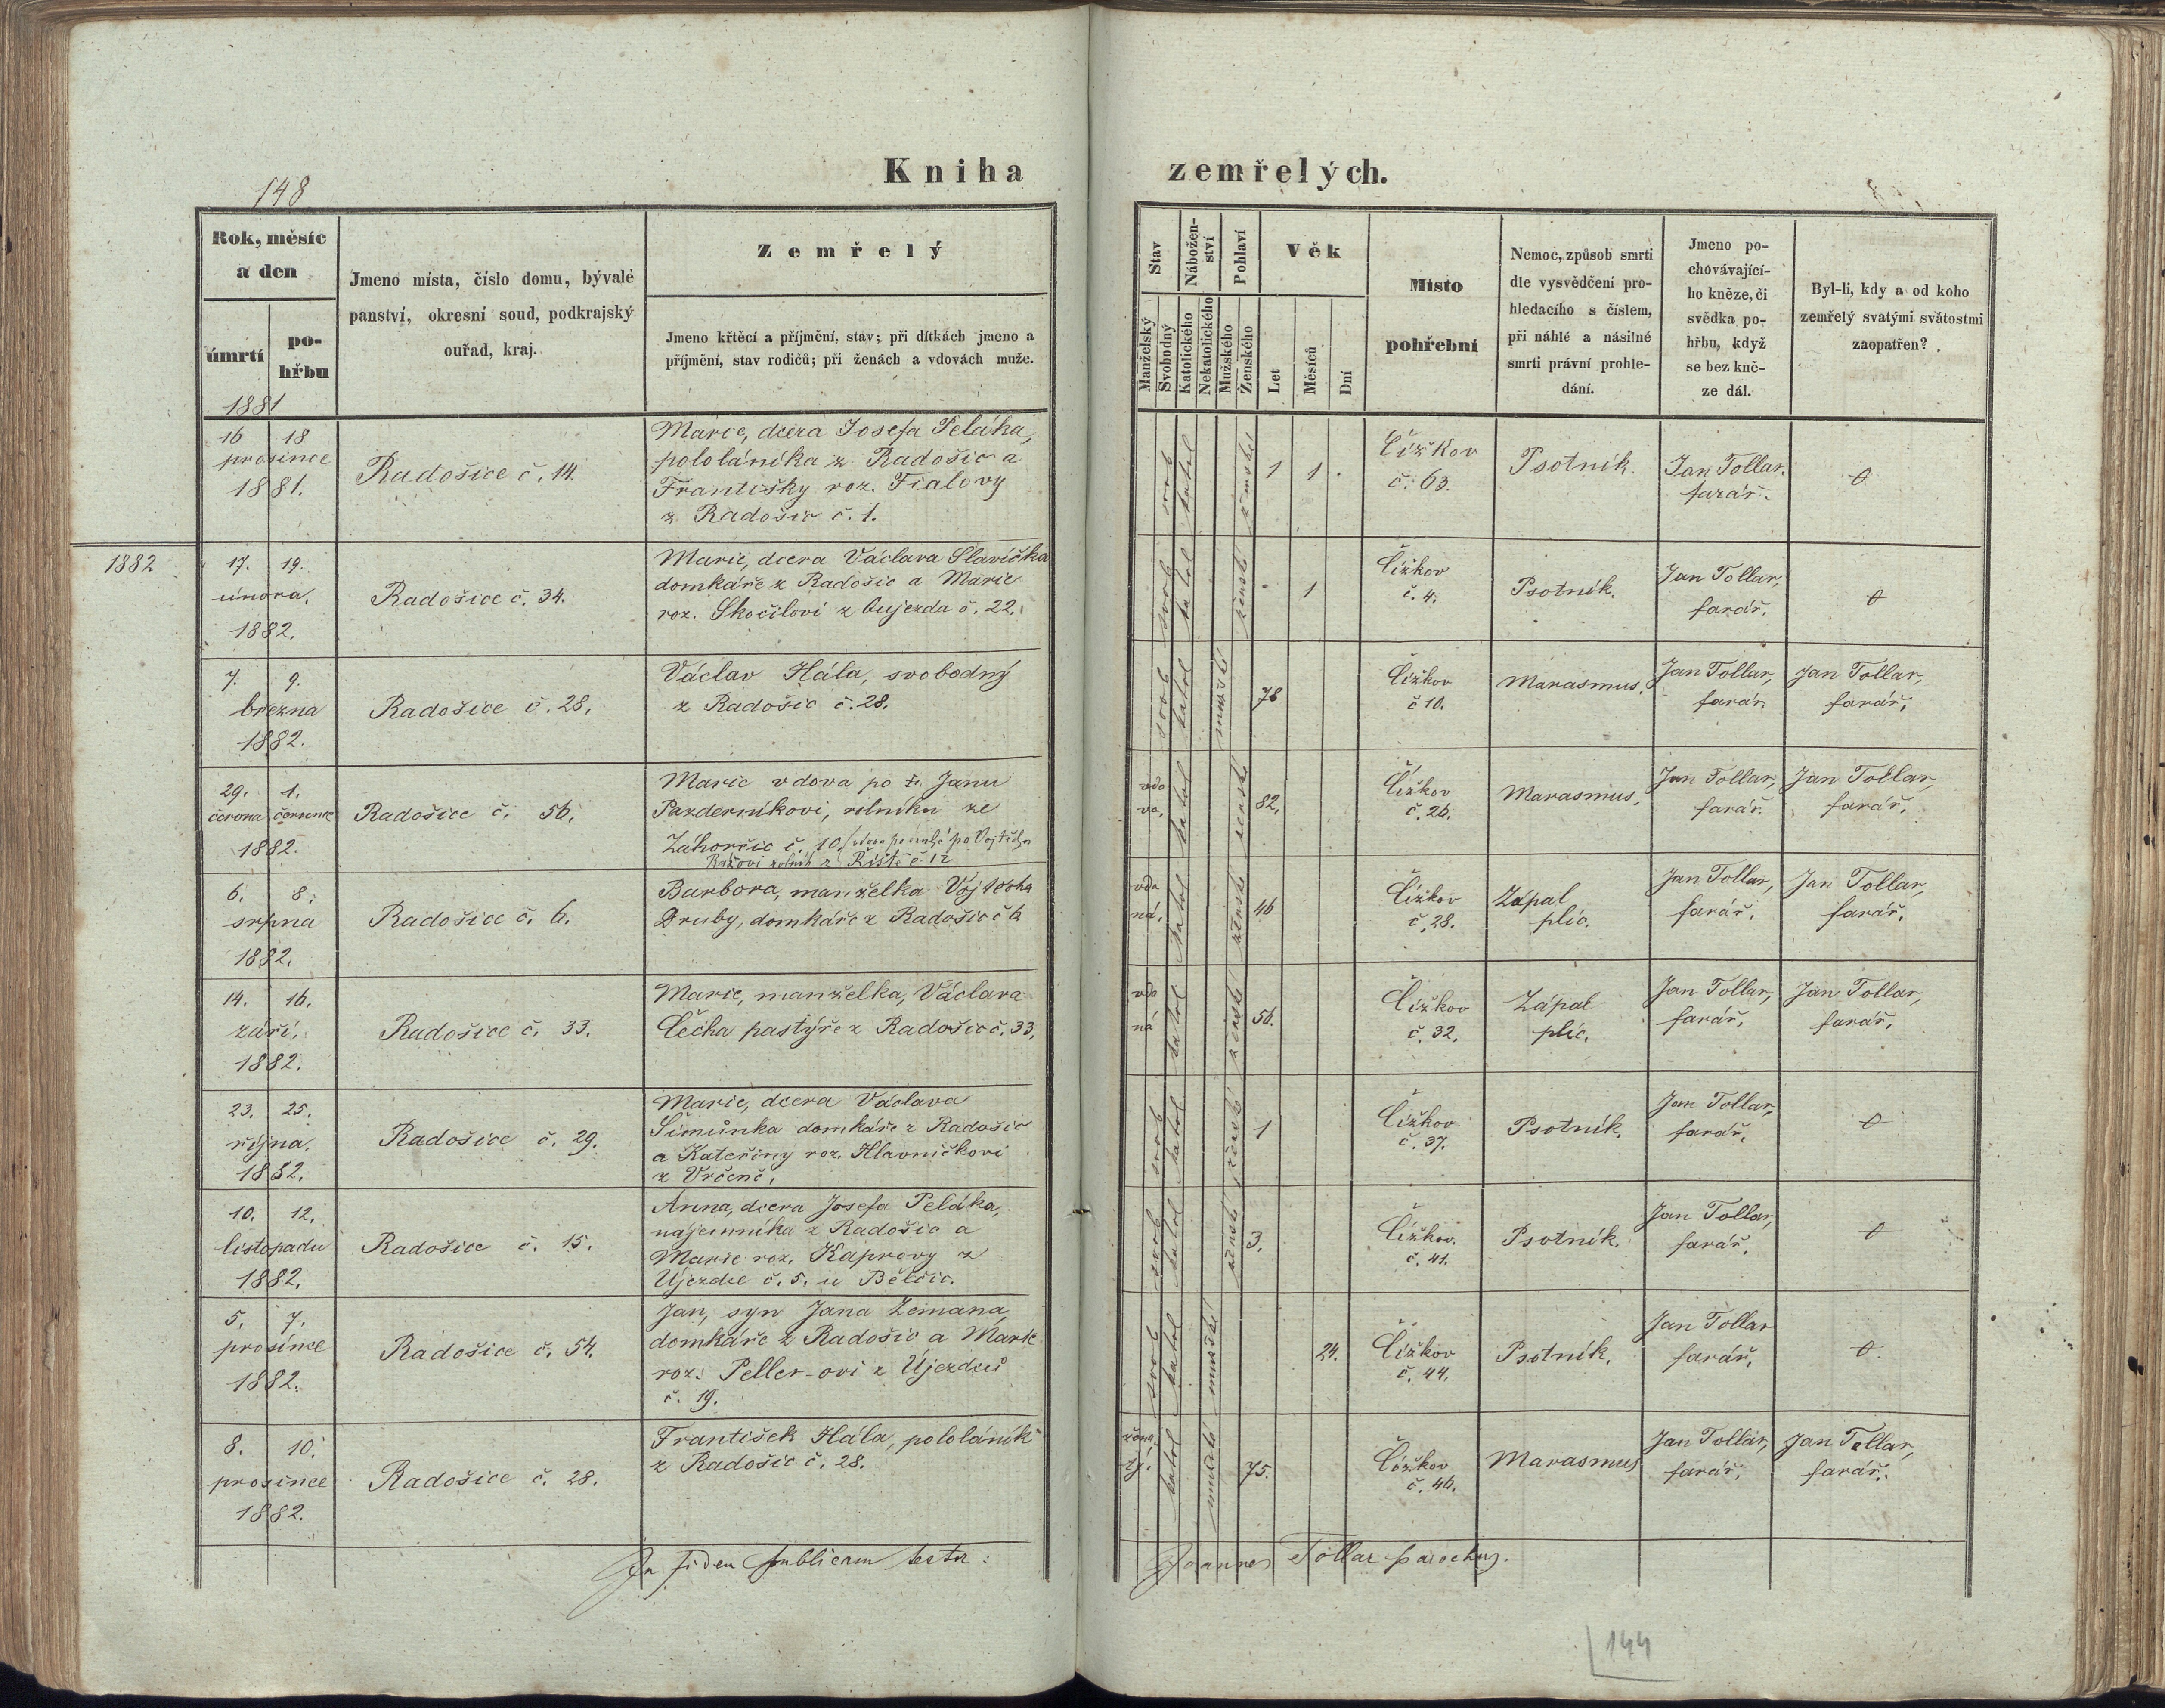 148
Kniha zemřelých.
Rok, měsíc
a den
úmrtí
po-
hřbu
1881
Jmeno místa, číslo domu, bývalé
panství, okresní soud, podkrajský
ouřad, kraj.
Zemřelý
Jmeno křtěcí a příjmění, stav; při dítkách jmeno a
příjmění, stav rodičů; při ženách a vdovách muže.
Stav
Manželský
Svobodný
Nábožen-
ství
Katolického
Nekatolického
Pohlaví
Mužského
Ženského
Věk
Let
Měsíců
Dní
Místo
pohřební
Nemoc, způsob smrti
dle vysvědčení pro-
hledacího s číslem,
při náhlé a násilné
smrti právní prohle-
dání.
Jmeno po-
chovávající-
ho kněze, či
svědka po-
hřbu, když
se bez kně-
ze dál.
Byl-li, kdy a od koho
zemřelý svatými svátostmi
zaopatřen?
16 18
prosince
1881.
Radošice č. 14.
Marie, dcera Josefa Peláka,
pololáníka z Radošic a
Františky roz. Fialovy
z Radošic č. 1.
svob katol ženské
1 1 .
Čížkov
č. 63.
Psotník.
Jan Tollar.
farář.
0
1882
17. 19.
února.
1882.
Radošice č. 34.
Marie, dcera Václava Slavíčka
domkáře z Radošic a Marie
roz. Skočilovi z Oujezda č. 22.
svob katol žensk
. 1
Čížkov
č. 4.
Psotník.
Jan Tollar,
farář.
0
7. 9.
března
1882.
Radošice č. 28.
Václav Hála, svobodný
z Radošic č. 28.
svob katol mužské
78
Čížkov
č 10.
Marasmus.
Jan Tollar,
farář.
Jan Tollar,
farář.
29. 1.
června července
1882.
Radošice č. 56.
Marie vdova po † Janu
Pazderníkovi, rolníku ze
Záhorčic č. 10.
vdo
va,
katol ženské
82.
Čížkov
č. 26.
Marasmus,
Jan Tollar,
farář.
Jan Tollar,
farář.
6. 8.
srpna
1882.
Radošice č. 6.
Barbora, manželka Vojtěcha
Druby, domkáře z Radošic č 6
vda
ná.
katol ženské
46
Čížkov
č. 28.
Zápal
plic.
Jan Tollar,
farář.
Jan Tollar,
farář.
14. 16.
září.
1882.
Radošice č. 33.
Marie, manželka, Václava
Čecha pastýře z Radošic č. 33.
vda
ná
katol ženské
56.
Čížkov
č. 32.
Zápal
plic.
Jan Tollar,
farář.
Jan Tollar,
farář.
23. 25.
října.
1882.
Radošice č. 29.
Marie, dcera Václava
Šimůnka domkáře z Radošic
a Kateřiny roz. Hlavničkovi
z Vrčeně.
svob katol ženské
1
Čížkov
č. 37.
Psotník.
Jan Tollar,
farář.
0
10. 12.
listopadu
1882.
Radošice č. 15.
Anna, dcera Josefa Peláka,
nájemníka z Radošic a
Marie roz. Kaprovy z
Újezdce č. 5. u Bělčic.
svob katol ženské
3.
Čížkov.
č. 41.
Psotník.
Jan Tollar,
farář.
0
5. 7.
prosince
1882.
Radošice č. 54.
Jan, syn Jana Zemana,
domkáře z Radošic a Marie
roz. Peller-ovi z Újezdce
č. 19.
svob katol mužské
24.
Čížkov
č. 44.
Psotník.
Jan Tollar
farář.
0
8. 10.
prosince
1882.
Radošice č. 28.
František Hála, pololáník
z Radošic č. 28.
žena
tý.
katol mužské
75.
Čížkov
č. 46.
Marasmus
Jan Tollar,
farář.
Jan Tollar,
farář.
In fidem publicam testor: Joannes Tollar parochus.
144